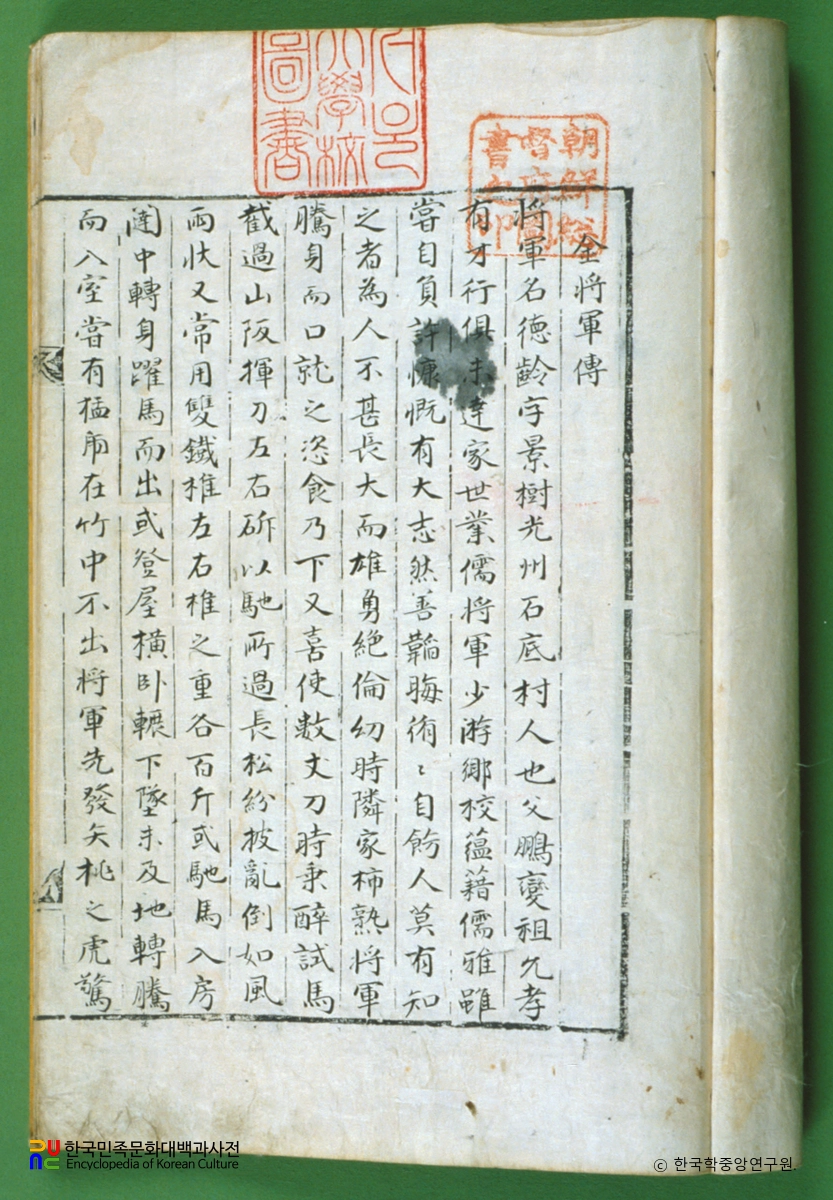 朝鮮総
督府圖
書之印
大學校
圖書
金將軍傳
將軍名德齡字景樹光州石底村人也父鵬變祖允孝
有才行俱未達家世業儒將軍少游鄕校蘊藉儒雅雖
嘗自負許慷慨有大志然善韜晦侑〻自飭人莫有知
之者為人不甚長大而雄勇絶倫幼時隣家柿熟將軍
騰身而口就之恣食乃下又喜使數丈刀時乘醉試馬
截過山阪揮刀左右斫以馳所過長松紛披亂倒如風
雨狀又常用雙鐵椎左右椎之重各百斤或馳馬入房
闥中轉身躍馬而出或登屋橫卧輾下墜未及地轉騰
而入室嘗有猛虎在竹中不出將軍先發矢挑之虎驚
한국민족문화대백과사전
Encyclopedia of Korean Culture
© 한국학중앙연구원